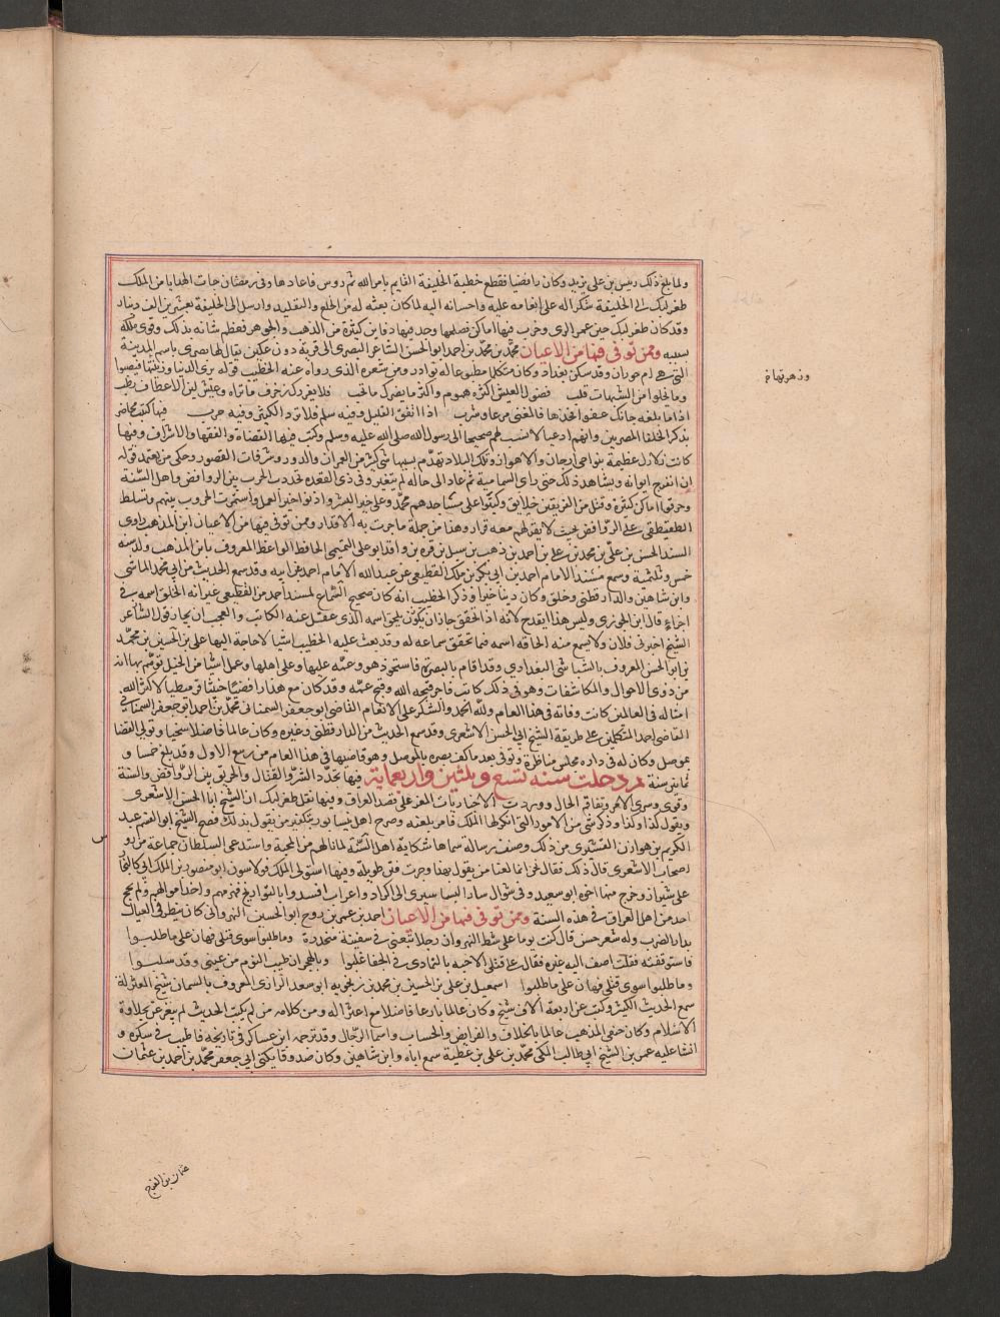 ولما بلغ ذلك دبيس بن علي بن يزيد وكان رافضيا فقطع خطبة الخليفة القايم بامر الله ثم فاعادها وفي رمضان جات الهدايا من الملك
طغرلبك الى الخليفة شكرا له على انعامه عليه واحسانه اليه لما كان بعثه له من الخلع والتقليد وارسل الى الخليفة بعشرين الف دينار
وقد كان طغرلبك حين عمر الري وخرب فيها اماكن فصلحها وجد فيها دفاين كثيرة من الذهب والجوهر فعظم شانه بذلك وقوي ملكه
بسببه وممن توفى فيها من الاعيان محمد بن محمد بن احمد ابو الحسن الشاعر البصرى الى قرية دون عكبرا يقال لها بصرى باسم المدينة
التي هي ام حوران وقد سكن بغداد وكان متكلما مطبوعا له نوادر ومن شعره الذى رواه عنه الخطيب قوله نرى الدنيا وزينتها فنصبوا
وما يخلوا من الشهوات قلب فضول العيش اكثره هموم واكثر ما يضرك ما تحب فلا يغررك زخرف ما تراه وعيش لين الاعطاف رطب
اذا ما بلغة جاتك عفوا فخذها فالغنى مرعا وشرب اذا اتفق القليل وفيه سلم فلا ترد الكثير وفيه حرب فيها كتب محاضر
بذكر الخلفا المصريين وانهم ادعيا لا نسب لهم صحيحا الى رسول الله صلى الله عليه وسلم وكتب فيها القضاة والفقها والاشراف وفيها
كانت زلازل عظيمة بنواحى ارجان والاهواز وتلك البلاد تهدم بسببها شي كثير من العمران والدور وشرفات القصور وحكى من يعتمد قوله
انه انفرج ايوانه وشاهد ذلك حتى راى السما منه ثم عاد الى حاله لم يتغير وفي ذى القعده تجددت الحرب بين الروافض واهل السنة
وحرقوا اماكن كثيرة وقتل من الفريقين خلايق وكتبوا على مساجدهم محمد وعلي خير البشر واذنوا بحى على خير العمل واستمرت الحروب بينهم وتسلط
القطيعى على الروافض بحيث لا يقر لهم معه قرار وهذا من جملة ما جرت به الاقدار وممن توفى فيها من الاعيان ابن المذهب راوى
المسند الحسن بن علي بن محمد بن علي بن احمد بن وهب بن سبل بن قره بن واقد ابو علي التميمي الحافظ الواعظ المعروف بابن المذهب ولد سنه
خمس وثلثماية وسمع مسند الامام احمد بن ابي بكر بن ملك القطيعي عن عبدالله بن الامام احمد عن ابيه وقد سمع الحديث من ابي محمد الماسي
وابن شاهين والدارقطني وخلق وكان دينا خيرا وذكر الخطيب انه كان صحيح السماع لمسند احمد من القطيعى غير انه الحق اسمه في
اجزاء قال ابن الجوزى وليس هذا يقدح لانه اذا تحقق جاز ان يكون يلحق اسمه الذى غفل عنه الكاتب والعجب ان يجاز قول الشاعر
الشيخ اخبرني فلان ولا يسمع منه الحاقه اسمه فما تحقق سماعه له وقد بعث عليه الخطيب اشيا لا حاجة اليها علي بن الحسين بن محمد
ابو الحسن المعروف بالشباشى البغدادي وقد اقام بالبصرة فاستحوذ هو وعمه عليها وعلى اهلها وعمل اشيا من الحيل توهم بها انه
من ذوى الاحوال والمكاشفات وهو في ذلك كاذب فاجر قبحه الله وقبح عمه وقد كان مع هذا رافضيا خبيثا قرمطيا لا كثر الله
امثاله في العالمين كانت وفاته في هذا العام ولله الحمد والشكر على الانعام القاضى ابو جعفر السمناني محمد بن احمد ابو جعفر السمناني
القاضى احد المتكلمين على طريقة الشيخ ابي الحسن الاشعري وقد سمع الحديث من الدارقطني وغيره وكان عالما فاضلا سخيا وتولى القضا
بموصل وكان له في داره مجلس مناظرة وتوفى بعد ما كف بصره بالموصل وهو قاضيها في هذا العام من ربيع الاول وقد بلغ خمسا و
ثمانين سنة ثم دخلت سنه تسع وثلثين واربعماية فيها تجدد الشر والقتال والحريق بين الروافض والسنة
وقوى وسرى الامر وتفاقم الحال ووردت الاخبار بان المعز على قصد العراق وفيها نقل طغرلبك ان الشيخ ابا الحسن الاشعرى
ويقول كذا وكذا وذكر شي من الامور التي انكرها الملك فامر بلعنه وصرح اهل نيسابور بتكفير من يقول بذلك فضج الشيخ ابو القسم عبد
الكريم بن هوازن القشيرى من ذلك وصنف رسالة سماها شكاية اهل السنة لما نالهم من المحنة واستدعى السلطان جماعة من رو
اصحاب الاشعرى قال ذلك فقال نحن انما لعنا من يقول بهذا وجرت فتن طويلة وفيها استولى الملك فولاسون ابو منصور بن الملك ابي كاليجار
على شيراز وخرج منها اخوه ابو سعيد وفي شوال سار البساسيرى الى اكراد واعراب افسدوا بالبوازيج فهزمهم واخذ اموالهم ولم يحج
احد من اهل العراق في هذه السنة وممن توفى فيها من الاعيان احمد بن عمر بن روح ابو الحسين النهرواني كان ينظر في العيار
بدار الضرب وله شعر حسن قال كنت يوما على شط النهروان رجلا يتغنى في سفينة منحدرة وما طلبوا سوى قتلي فهان علي ما طلبوا
فاستوقفته فقلت اضف اليه غيره فقال على قتلي الاحبه بالتمادي في الجفا غلبوا وبالهجران طيب النوم من عينى وقد سلبوا
وما طلبوا سوى قتلي فهان علي ما طلبوا اسمعيل بن علي بن الحسين بن محمد بن زنجويه ابو سعد الرازى المعروف بالسمان شيخ المعتزلة
سمع الحديث الكثير وكتب عن اربعة الاف شيخ وكان عالما بارعا فاضلا مع اعتزاله ومن كلامه من لم يكتب الحديث لم يتغرغر بحلاوة
الاسلام وكان حنفى المذهب عالما بالخلاف والفرايض والحساب واسما الرجال وقد ترجمه ابن عساكر في تاريخه فاطنب في شكره و
الثنا عليه عمر بن الشيخ ابي طالب المكي محمد بن علي بن عطية سمع اباه وابن شاهين وكان صدوقا يكنى بابي جعفر محمد بن احمد بن عثمان
عثمان بن الفرج